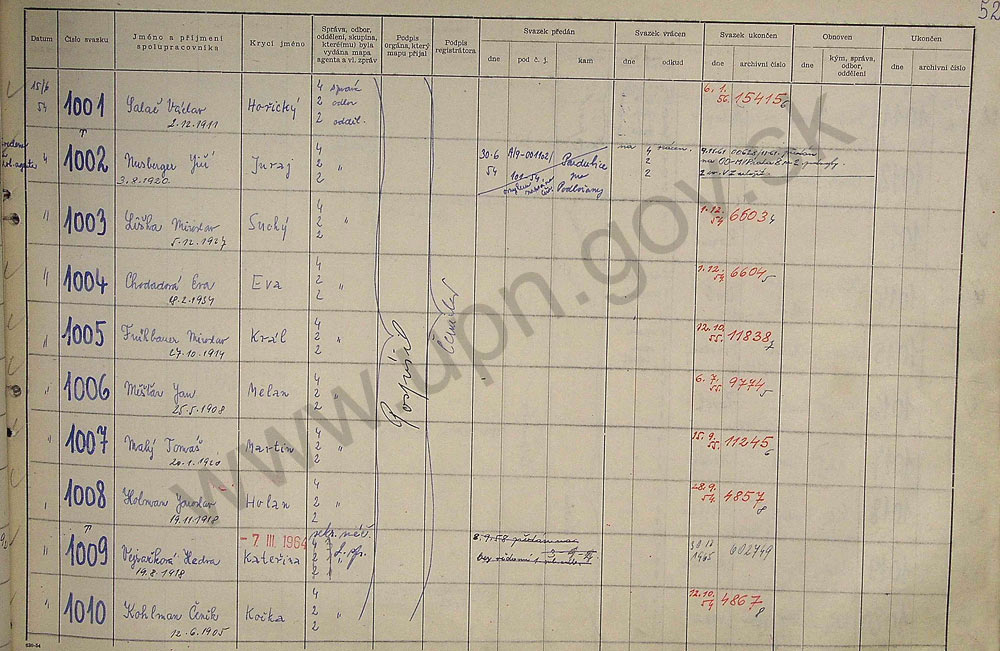 52
Datum
Číslo svazku
Jméno a příjmení spolupracovníka
Krycí jméno
Správa, odbor, oddělení, skupina, které(mu) byla vydána mapa agenta a vl. zpráv
Podpis orgána, který mapu přijal
Podpis registrátora
Svazek předán
dne
pod č. j.
kam
Svazek vrácen
dne
odkud
Svazek ukončen
dne
archivní číslo
Obnoven
dne
kým, správa, odbor, oddělení
Ukončen
dne
archivní číslo
15/6 54 1001 Salač Václav 2.12.1911 Hořický 4 správa 2 odbor 2 odděl. 6.1. 56. 15415 6
1002 Jiří 3.8.1920 Juraj 4 2 2 " 30.6 54 A/9-001102/ Pardubice na 4 2 2
" 1003 Liška Miroslav 5.12.1927 Suchý 4 2 2 " 1.12. 54 6603 4
" 1004 Eva 2.1934 Eva 4 2 2 " 1.12. 54 6604 5
" 1005 Frühbauer Miroslav 27.10.1914 Král 4 2 2 " 12.10. 55. 11838 7
" 1006 Jan 25.5.1908 Melan 4 2 2 " 6.7. 55 9774 5
" 1007 Malý Tomáš Martin 4 2 2 " 15.9. 55. 11245 6
" 1008 Holman Jaroslav 19.11.1918 Holan 4 2 2 " 28.9. 54. 4857 8
" 1009 Hedva 19.8.1918 - 7 III 1964 Kateřina 8.9.58 30.12 1965 602749
" 1010 Kohlman Čeněk 12.6.1905 Kočka 4 2 2 " 12.10. 54 4867 8
Pospíšil
www.upn.gov.sk